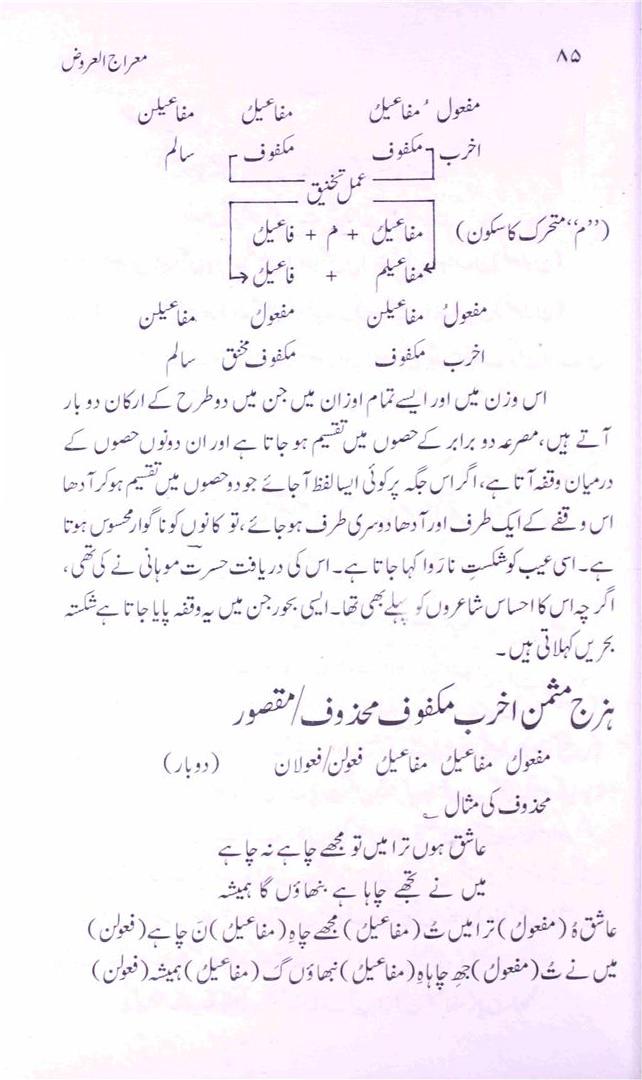 معراج العروض ۸۵
مفعول ُ مفاعیلُ مفاعیلُ مفاعیلن
اخرب مکفوف مکفوف سالم
عمل تخنیق
(”م“ متحرک کا سکون) مفاعیلُ + مَ + فاعیلُ
مفاعیلم + فاعیلُ
مفعولُ مفاعیلن مفعولُ مفاعیلن
اخرب مکفوف مکفوف مخنق سالم
اس وزن میں اور ایسے تمام اوزان میں جن میں دو طرح کے ارکان دو بار
آتے ہیں، مصرعہ دو برابر کے حصوں میں تقسیم ہو جاتا ہے اور ان دونوں حصوں کے
درمیان وقفہ آتا ہے، اگر اس جگہ پر کوئی ایسا لفظ آ جائے جو دو حصوں میں تقسیم ہو کر آدھا
اس وقفے کے ایک طرف اور آدھا دوسری طرف ہو جائے، تو کانوں کو ناگوار محسوس ہوتا
ہے۔ اسی عیب کو شکستِ ناروا کہا جاتا ہے۔ اس کی دریافت حسرتؔ موہانی نے کی تھی،
اگرچہ اس کا احساس شاعروں کو پہلے بھی تھا۔ ایسی بحور جن میں یہ وقفہ پایا جاتا ہے شکستہ
بحریں کہلاتی ہیں۔
ہزج مثمن اخرب مکفوف محذوف/مقصور
مفعولُ مفاعیلُ مفاعیلُ فعولن/فعولان (دوبار)
محذوف کی مثال ؎
عاشق ہوں ترا میں تو مجھے چاہے نہ چاہے
میں نے تجھے چاہا ہے بنھاؤں گا ہمیشہ
عاشق ہُ (مفعولُ) ترا میں تُ (مفاعیلُ) مجھے چاہِ (مفاعیلُ) نَ چاہے (فعولن)
میں نے تُ (مفعولُ) جھِ چاہاہِ (مفاعیلُ) نبھاؤں گَ (مفاعیلُ) ہمیشہ (فعولن)